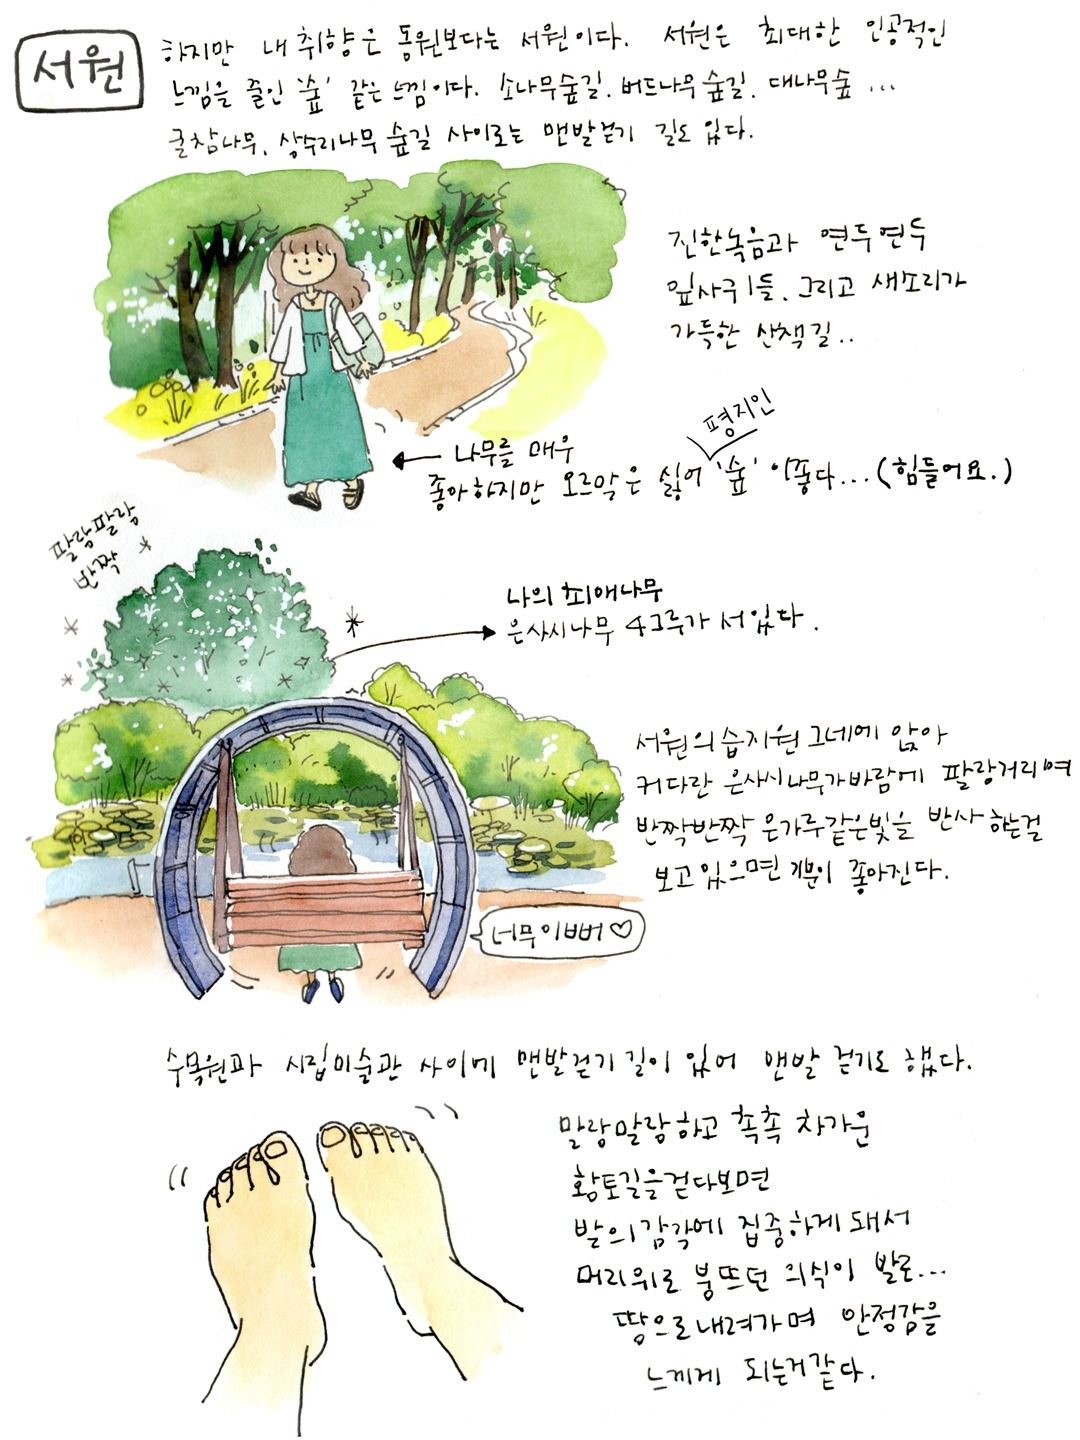 서원
하지만 내 취향은 동원보다는 서원이다. 서원은 최대한 인공적인
느낌을 줄인 '숲' 같은 느낌이다. 소나무숲길, 버드나무숲길, 대나무숲 ...
굴참나무, 상수리나무 숲길 사이로는 맨발걷기 길도 있다.
진한녹음과 연두연두
잎사귀들, 그리고 새소리가
가득한 산책길..
평지인
나무를 매우
좋아하지만 오르막은 싫어 '숲' 이좋다...(힘들어요.)
팔랑팔랑
반짝
나의 최애나무
은사시나무 4그루가 서있다.
서원의 습지원 그네에 앉아
커다란 은사시나무가바람에 팔랑거리며
반짝반짝 은가루같은빛을 반사하는걸
보고있으면 기분이 좋아진다.
너무이뻐♡
수목원과 시립미술관 사이에 맨발걷기길이 있어 맨발 걷기도 했다.
말랑말랑하고 촉촉 차가운
황토길을걷다보면
발의감각에 집중하게돼서
머리위로 붕뜨던 의식이 발로...
땅으로내려가며 안정감을
느끼게 되는거같다.